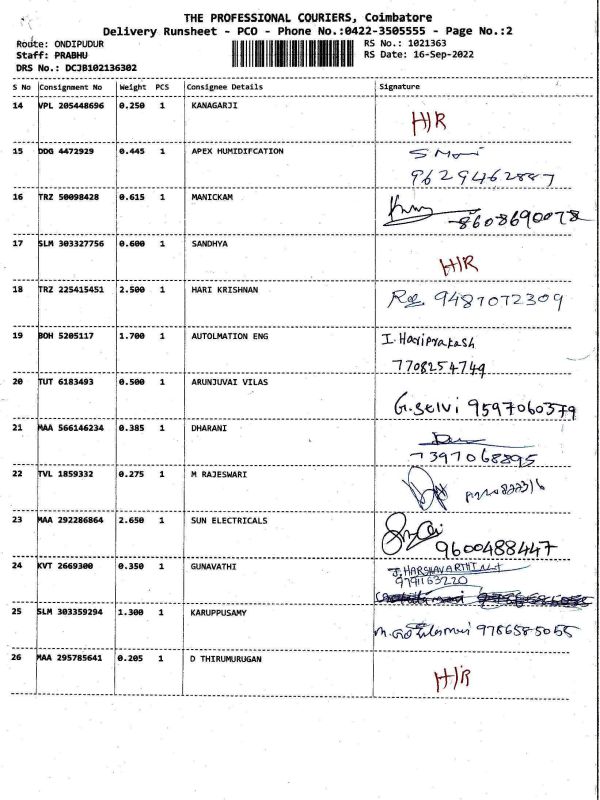 THE PROFESSIONAL COURIERS, Coimbatore
Delivery Runsheet - PCO - Phone No.:0422-3505555 - Page No.:2
Route: ONDIPUDUR RS No.: 1021363
Staff: PRABHU RS Date: 16-Sep-2022
DRS No.: DCJB102136302
S No Consignment No Weight PCS Consignee Details Signature
14 VPL 205448696 0.250 1 KANAGARJI
H/R
15 DDG 4472929 0.445 1 APEX HUMIDIFCATION S Mani
9629462887
16 TRZ 50098428 0.615 1 MANICKAM
8608690078
17 SLM 303327756 0.600 1 SANDHYA
H/R
18 TRZ 225415451 2.500 1 HARI KRISHNAN
9487072309
19 BOH 5205117 1.700 1 AUTOLMATION ENG I. Hariprakash
7708254749
20 TUT 6183493 0.500 1 ARUNJUVAI VILAS
G. Selvi 9597060379
21 MAA 566146234 0.385 1 DHARANI
7397068895
22 TVL 1859332 0.275 1 M RAJESWARI
23 MAA 292286864 2.650 1 SUN ELECTRICALS
9600488447
24 KVT 2669300 0.350 1 GUNAVATHI
9791163220
25 SLM 303359294 1.300 1 KARUPPUSAMY
9786585055
26 MAA 295785641 0.205 1 D THIRUMURUGAN
H/R